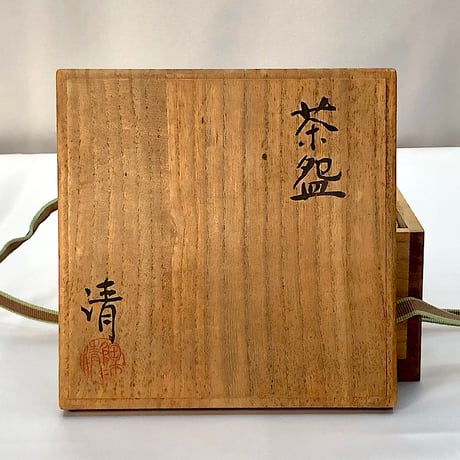 茶盌
清